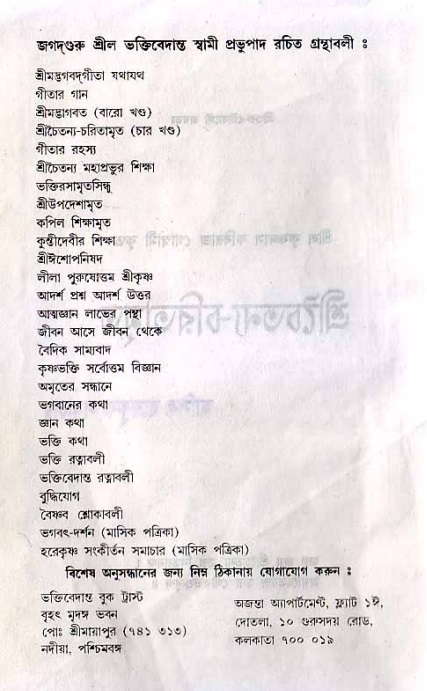 জগদ্গুরু শ্রীল ভক্তিবেদান্ত স্বামী প্রভুপাদ রচিত গ্রন্থাবলী :
শ্রীমদ্ভগবদ্গীতা যথাযথ
গীতার গান
শ্রীমদ্ভাগবত (বারো খণ্ড)
শ্রীচৈতন্য-চরিতামৃত (চার খণ্ড)
গীতার রহস্য
শ্রীচৈতন্য মহাপ্রভুর শিক্ষা
ভক্তিরসামৃতসিন্ধু
শ্রীউপদেশামৃত
কপিল শিক্ষামৃত
কুন্তীদেবীর শিক্ষা
শ্রীঈশোপনিষদ
লীলা পুরুষোত্তম শ্রীকৃষ্ণ
আদর্শ প্রশ্ন আদর্শ উত্তর
আত্মজ্ঞান লাভের পন্থা
জীবন আসে জীবন থেকে
বৈদিক সাম্যবাদ
কৃষ্ণভক্তি সর্বোত্তম বিজ্ঞান
অমৃতের সন্ধানে
ভগবানের কথা
জ্ঞান কথা
ভক্তি কথা
ভক্তি রত্নাবলী
ভক্তিবেদান্ত রত্নাবলী
বুদ্ধিযোগ
বৈষ্ণব শ্লোকাবলী
ভগবৎ-দর্শন (মাসিক পত্রিকা)
হরেকৃষ্ণ সংকীর্তন সমাচার (মাসিক পত্রিকা)
বিশেষ অনুসন্ধানের জন্য নিম্ন ঠিকানায় যোগাযোগ করুন :
ভক্তিবেদান্ত বুক ট্রাস্ট
বৃহৎ মৃদঙ্গ ভবন
পোঃ শ্রীমায়াপুর (৭৪১ ৩১৩)
নদীয়া, পশ্চিমবঙ্গ
অজন্তা অ্যাপার্টমেন্ট, ফ্ল্যাট ১ই,
দোতলা, ১০ গুরুসদয় রোড,
কলকাতা ৭০০ ০১৯